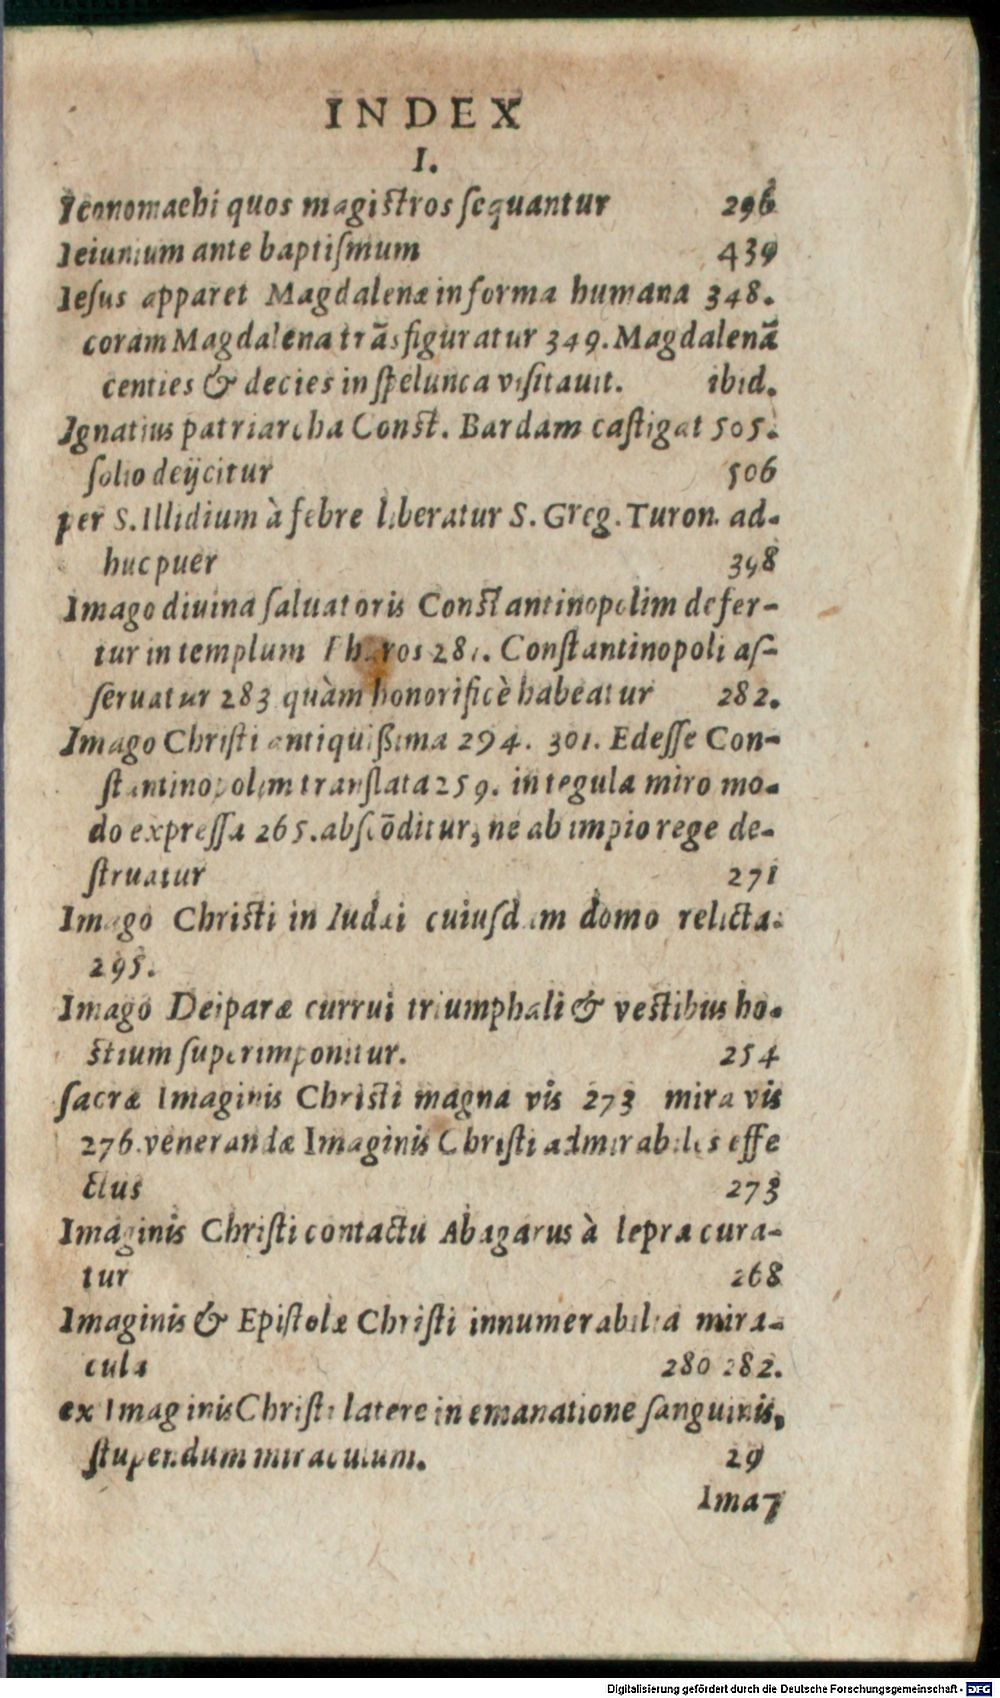 INDEX
I.
Iconomachi quos magistros sequantur 296
Ieiunium ante baptismum 439
Iesus apparet Magdalenæ in forma humana 348.
coram Magdalena trãsfiguratur 349. Magdalenã
centies & decies in spelunca visitauit. ibid.
Ignatius patriarcha Const. Bardam castigat 505.
solio deijcitur 506
per S. Illidium à febre liberatur S. Greg. Turon. ad-
huc puer 398
Imago diuina saluatoris Constantinopolim defer-
tur in templum Pharos 281. Constantinopoli as-
seruatur 283 quàm honorificè habeatur 282.
Imago Christi antiquißima 294. 301. Edesse Con-
stantinopolim translata 259. in tegula miro mo-
do expressa 265. abscõditur, ne ab impio rege de-
struatur 271
Imago Christi in Iudæi cuiusdam domo relicta.
295.
Imago Deiparæ currui triumphali & vestibus ho-
stium superimponitur. 254
sacræ Imaginis Christi magna vis 273 mira vis
276. venerandæ Imaginis Christi admirabiles effe
ctus 273
Imaginis Christi contactu Abagarus à lepra cura-
tur 268
Imaginis & Epistolæ Christi innumerabilia mira-
cula 280 282.
ex Imaginis Christi latere in emanatione sanguinis,
stupendum miraculum. 29
Ima-
Digitalisierung gefördert durch die Deutsche Forschungsgemeinschaft - DFG